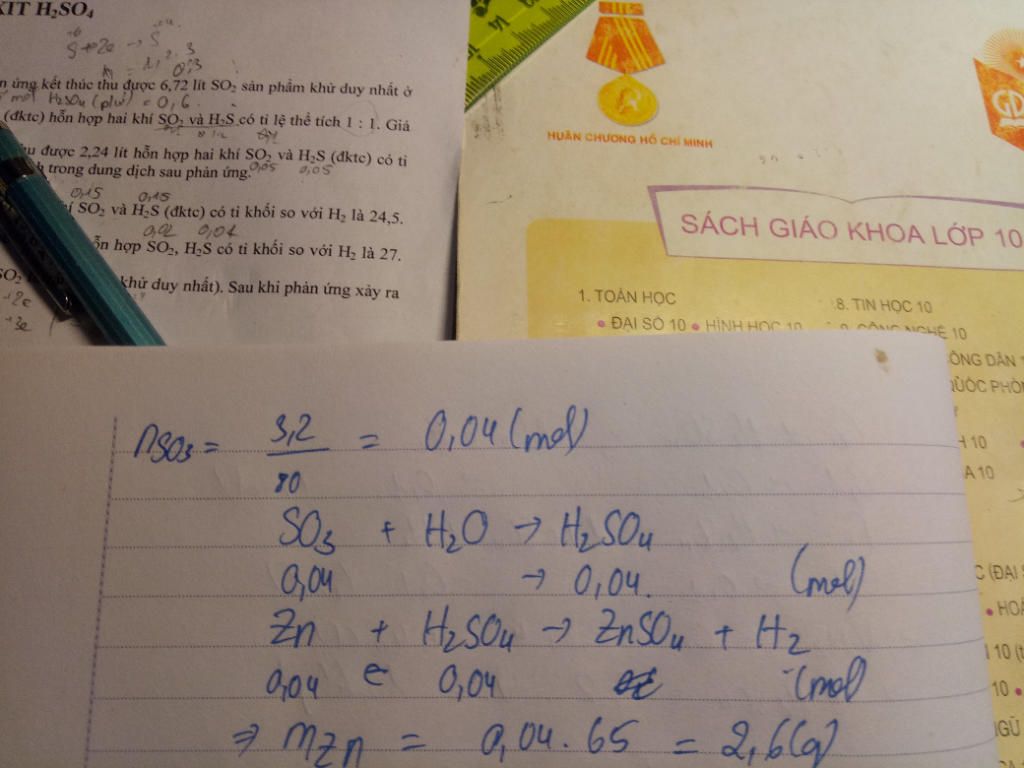 XIT H₂SO₄
n ứng kết thúc thu được 6,72 lít SO₂ sản phẩm khử duy nhất ở
mol H₂SO₄ (pư) = 0,6
(đktc) hỗn hợp hai khí SO₂ và H₂S có tỉ lệ thể tích 1 : 1. Giá
u được 2,24 lít hỗn hợp hai khí SO₂ và H₂S (đktc) có tỉ
trong dung dịch sau phản ứng.
0,05 0,05
0,15 0,15
í SO₂ và H₂S (đktc) có tỉ khối so với H₂ là 24,5.
0,02 0,04
ỗn hợp SO₂, H₂S có tỉ khối so với H₂ là 27.
khử duy nhất). Sau khi phản ứng xảy ra
+2e
+3e
HUÂN CHƯƠNG HỒ CHÍ MINH
SÁCH GIÁO KHOA LỚP 10
1. TOÁN HỌC
• ĐẠI SỐ 10 • HÌNH HỌC 10
8. TIN HỌC 10
9. CÔNG NGHỆ 10
ÔNG DÂN 1
QUỐC PHÒN
H 10
A 10
C (ĐẠI S
• HOÁ
10 (t
10 •
NGỮ
nSO₃ = 3,2 / 80 = 0,04 (mol)
SO₃ + H₂O → H₂SO₄
0,04 → 0,04. (mol)
Zn + H₂SO₄ → ZnSO₄ + H₂
0,04 ← 0,04 (mol
⇒ mZn = 0,04.65 = 2,6(g)